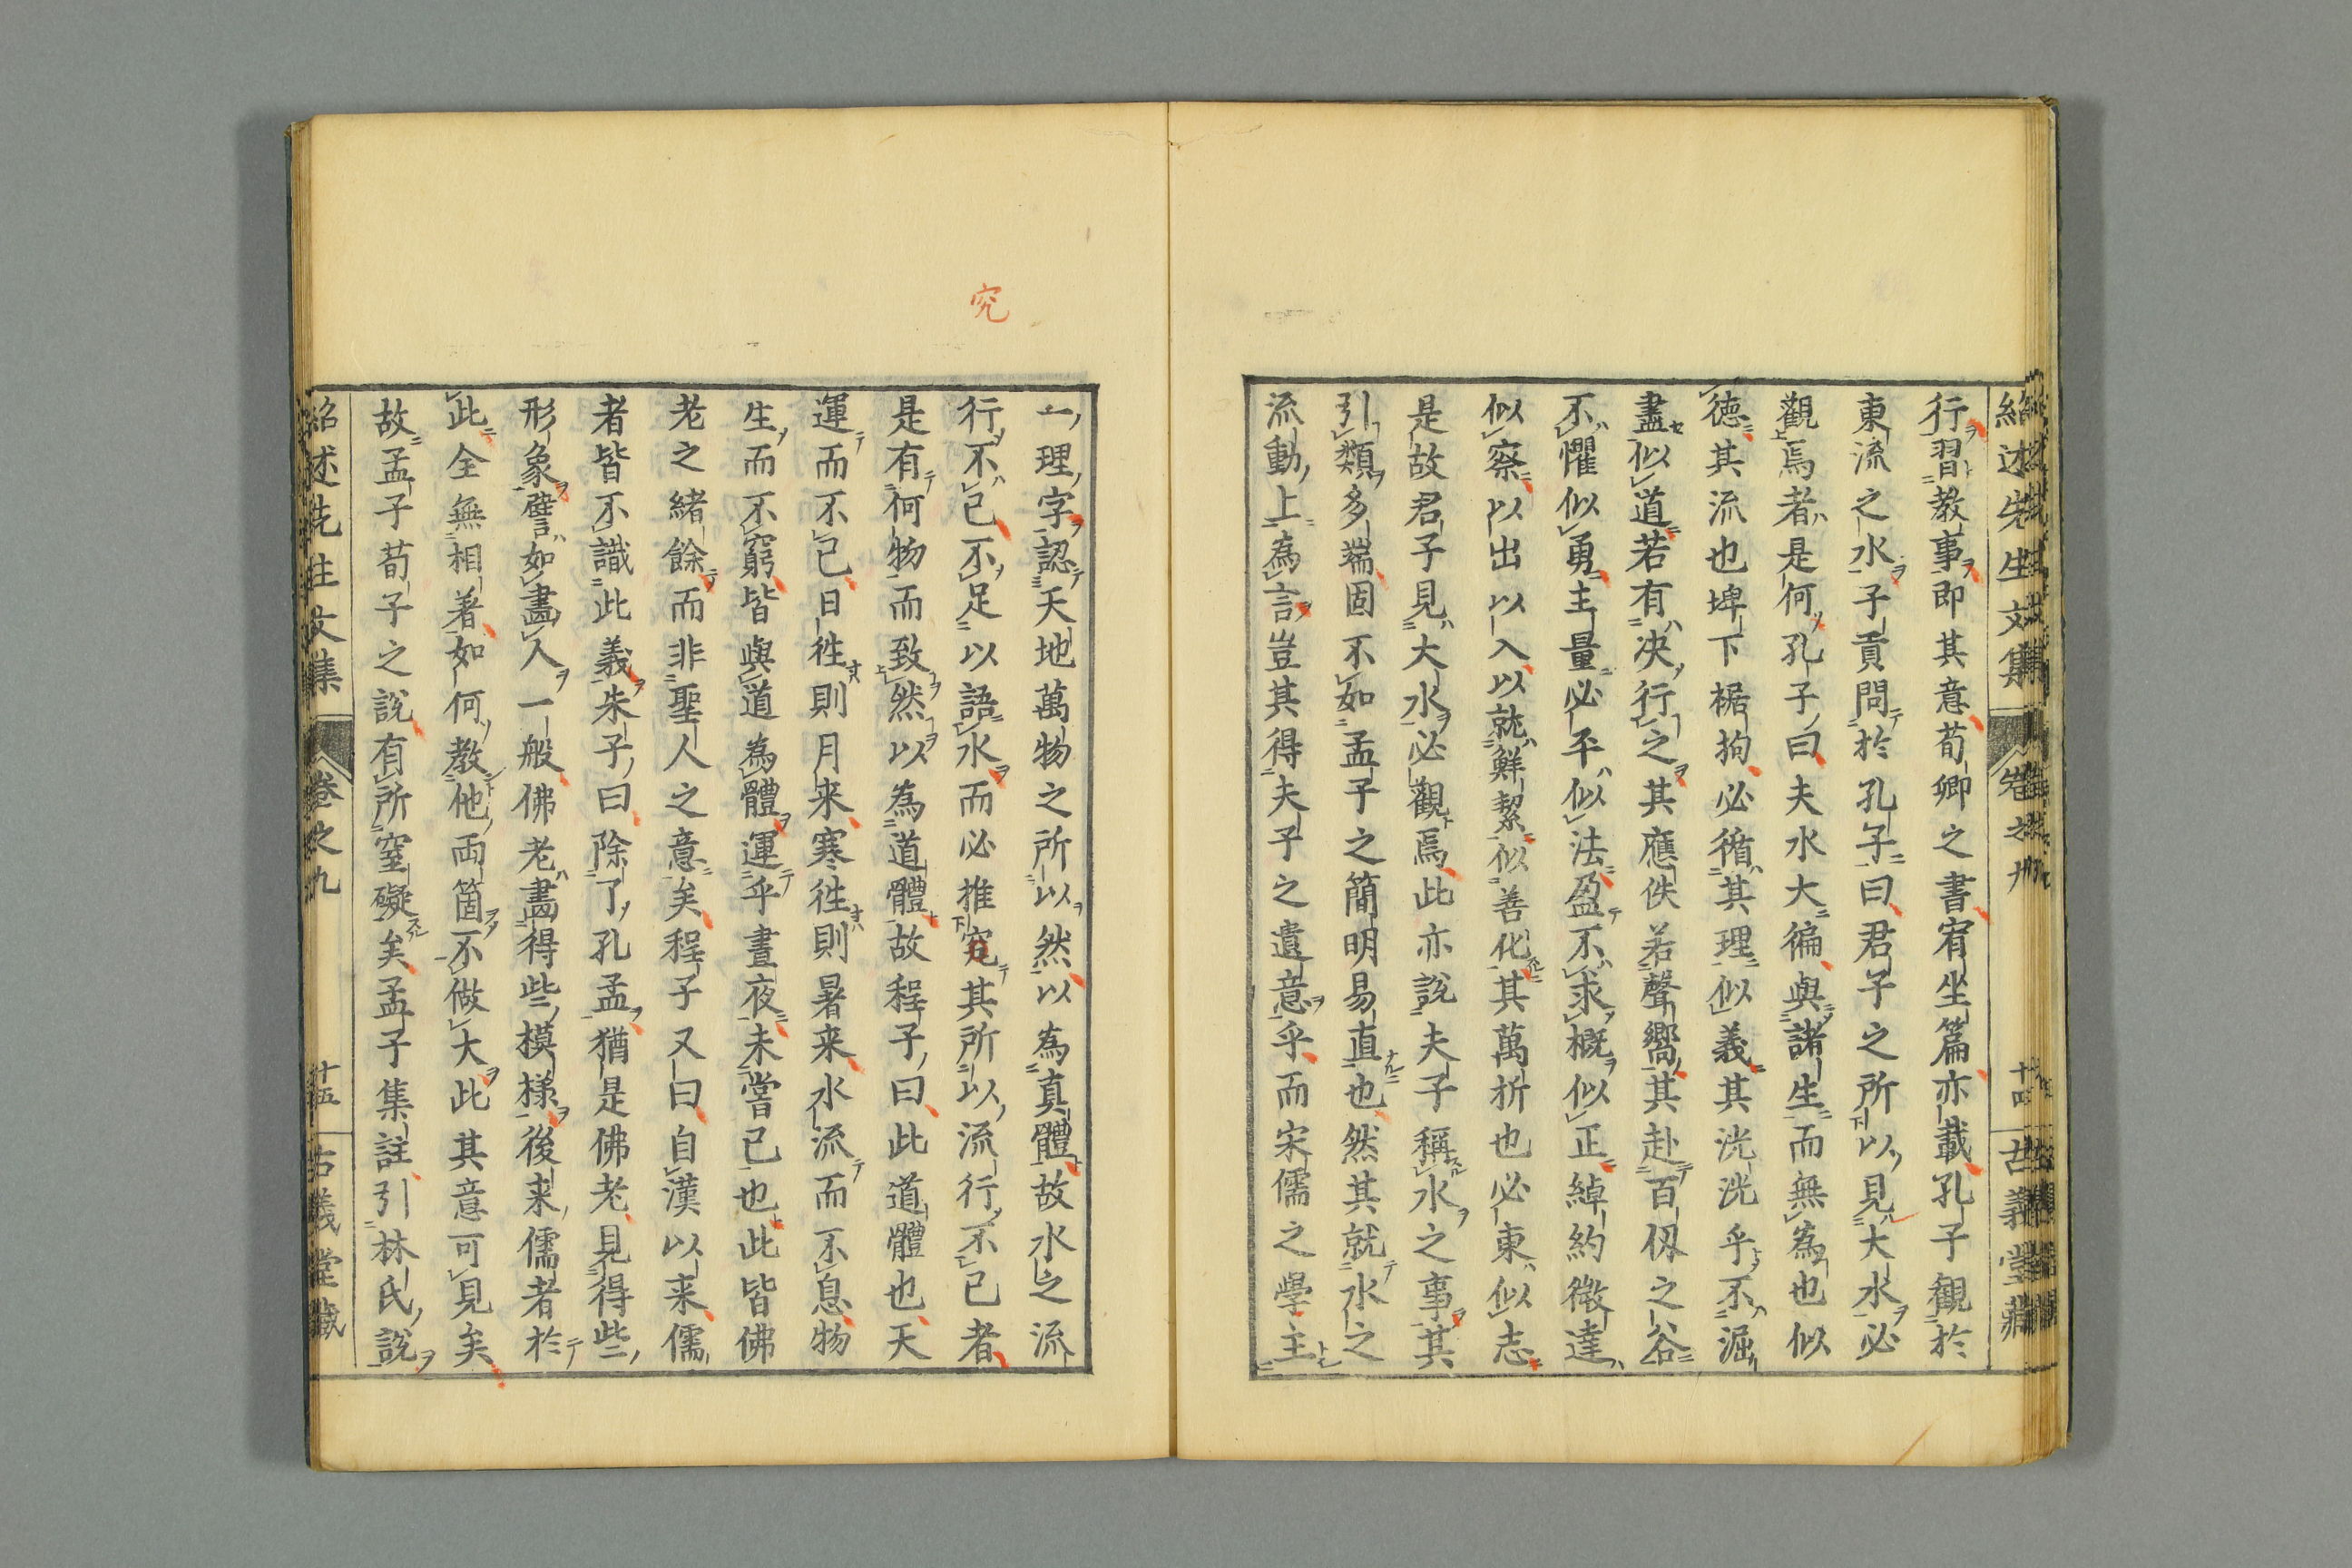 紹述先生文集
卷之九
十四
古義堂藏
行習教事即其意荀卿之書宥坐篇亦載孔子觀於
東流之水子貢問於孔子曰君子之所以見大水必
觀焉者是何孔子曰夫水大徧與諸生而無為也似
德其流也埤下裾拘必循其理似義其洸洸乎不淈
盡似道若有决行之其應佚若聲嚮其赴百仞之谷
不懼似勇主量必平似法盈不求槪似正綽約微達
似察以出以入以就鮮絜似善化其萬折也必東似志
是故君子見大水必觀焉此亦說夫子稱水之事其
引類多端固不如孟子之簡明易直也然其就水之
流動上為言豈其得夫子之遺意乎而宋儒之學主
究
一理字認天地萬物之所以然以為真體故水之流
行不已不足以語水而必推究其所以流行不已者
是有何物而致然以為道體故程子曰此道體也天
運而不已日徃則月来寒徃則暑来水流而不息物
生而不窮皆與道為體運乎晝夜未嘗已也此皆佛
老之緒餘而非聖人之意矣程子又曰自漢以来儒
者皆不識此義朱子曰除了孔孟猶是佛老見得些
形象譬如畵人一般佛老畵得些模樣後来儒者於
此全無相著如何教他兩箇不做大此其意可見矣
故孟子荀子之說有所窒礙矣孟子集註引林氏說
紹述先生文集
卷之九
十五
古義堂藏